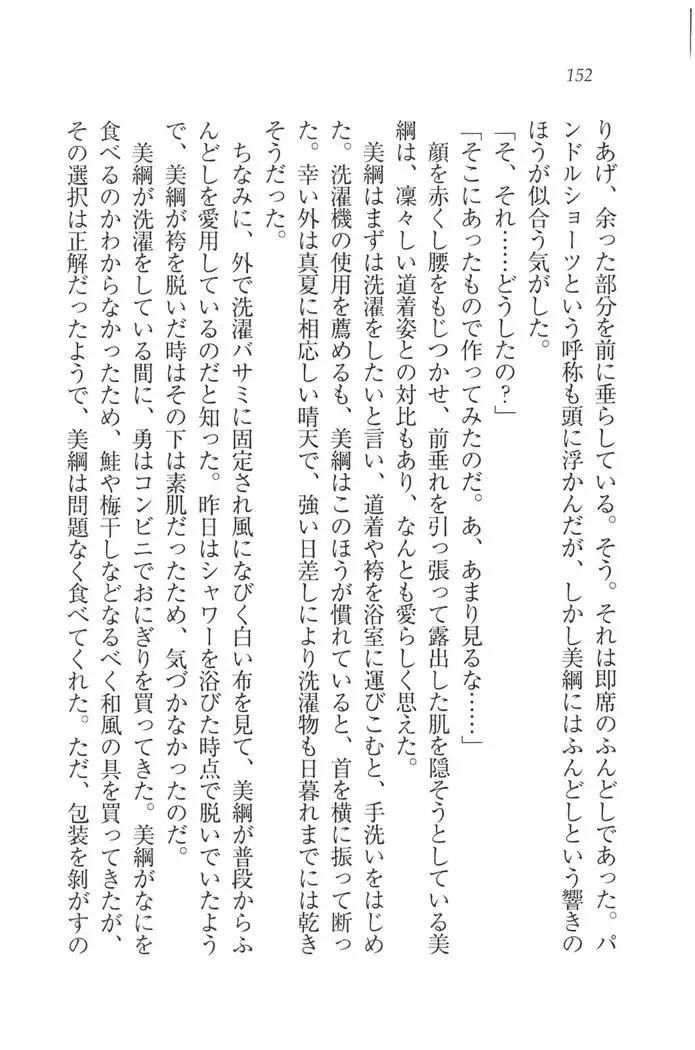 152
りあげ、余った部分を前に垂らしている。そう。それは即席のふんどしであった。パ
ンドルショーツという呼称も頭に浮かんだが、しかし美綱にはふんどしという響きの
ほうが似合う気がした。
「そ、それ……どうしたの？」
「そこにあったもので作ってみたのだ。あ、あまり見るな……」
顔を赤くし腰をもじつかせ、前垂れを引っ張って露出した肌を隠そうとしている美
綱は、凜々しい道着姿との対比もあり、なんとも愛らしく思えた。
美綱はまずは洗濯をしたいと言い、道着や袴を浴室に運びこむと、手洗いをはじめ
た。洗濯機の使用を薦めるも、美綱はこのほうが慣れていると、首を横に振って断っ
た。幸い外は真夏に相応しい晴天で、強い日差しにより洗濯物も日暮れまでには乾き
そうだった。
ちなみに、外で洗濯バサミに固定され風になびく白い布を見て、美綱が普段からふ
んどしを愛用しているのだと知った。昨日はシャワーを浴びた時点で脱いでいたよう
で、美綱が袴を脱いだ時はその下は素肌だったため、気づかなかったのだ。
美綱が洗濯をしている間に、勇はコンビニでおにぎりを買ってきた。美綱がなにを
食べるのかわからなかったため、鮭や梅干しなどなるべく和風の具を買ってきたが、
その選択は正解だったようで、美綱は問題なく食べてくれた。ただ、包装を剝がすの